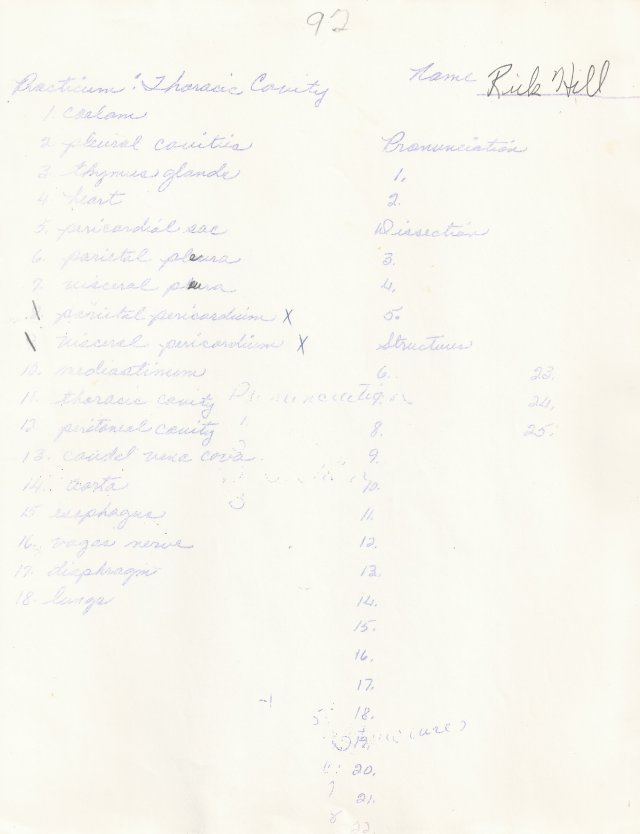 92
Name Rick Hill
Practicum: Thoracic Cavity
1. coelom
2. pleural cavities
3. thymus glande
4. heart
5. pericardial sac
6. parietal pleura
7. visceral pleura
parietal pericardium X
visceral pericardium X
10. mediastinum
11. thoracic cavity
12. peritoneal cavity
13. caudal vena cava
14. aorta
15. esophagus
16. vagas nerve
17. diaphragm
18. lungs
Pronunciation
1.
2.
Dissection
3.
4.
5.
Structures
6.
8.
9.
10.
11.
12.
13.
14.
15.
16.
17.
18.
19.
20.
21.
22
23.
24.
25.
Pronunciation
1.
3
-1
5